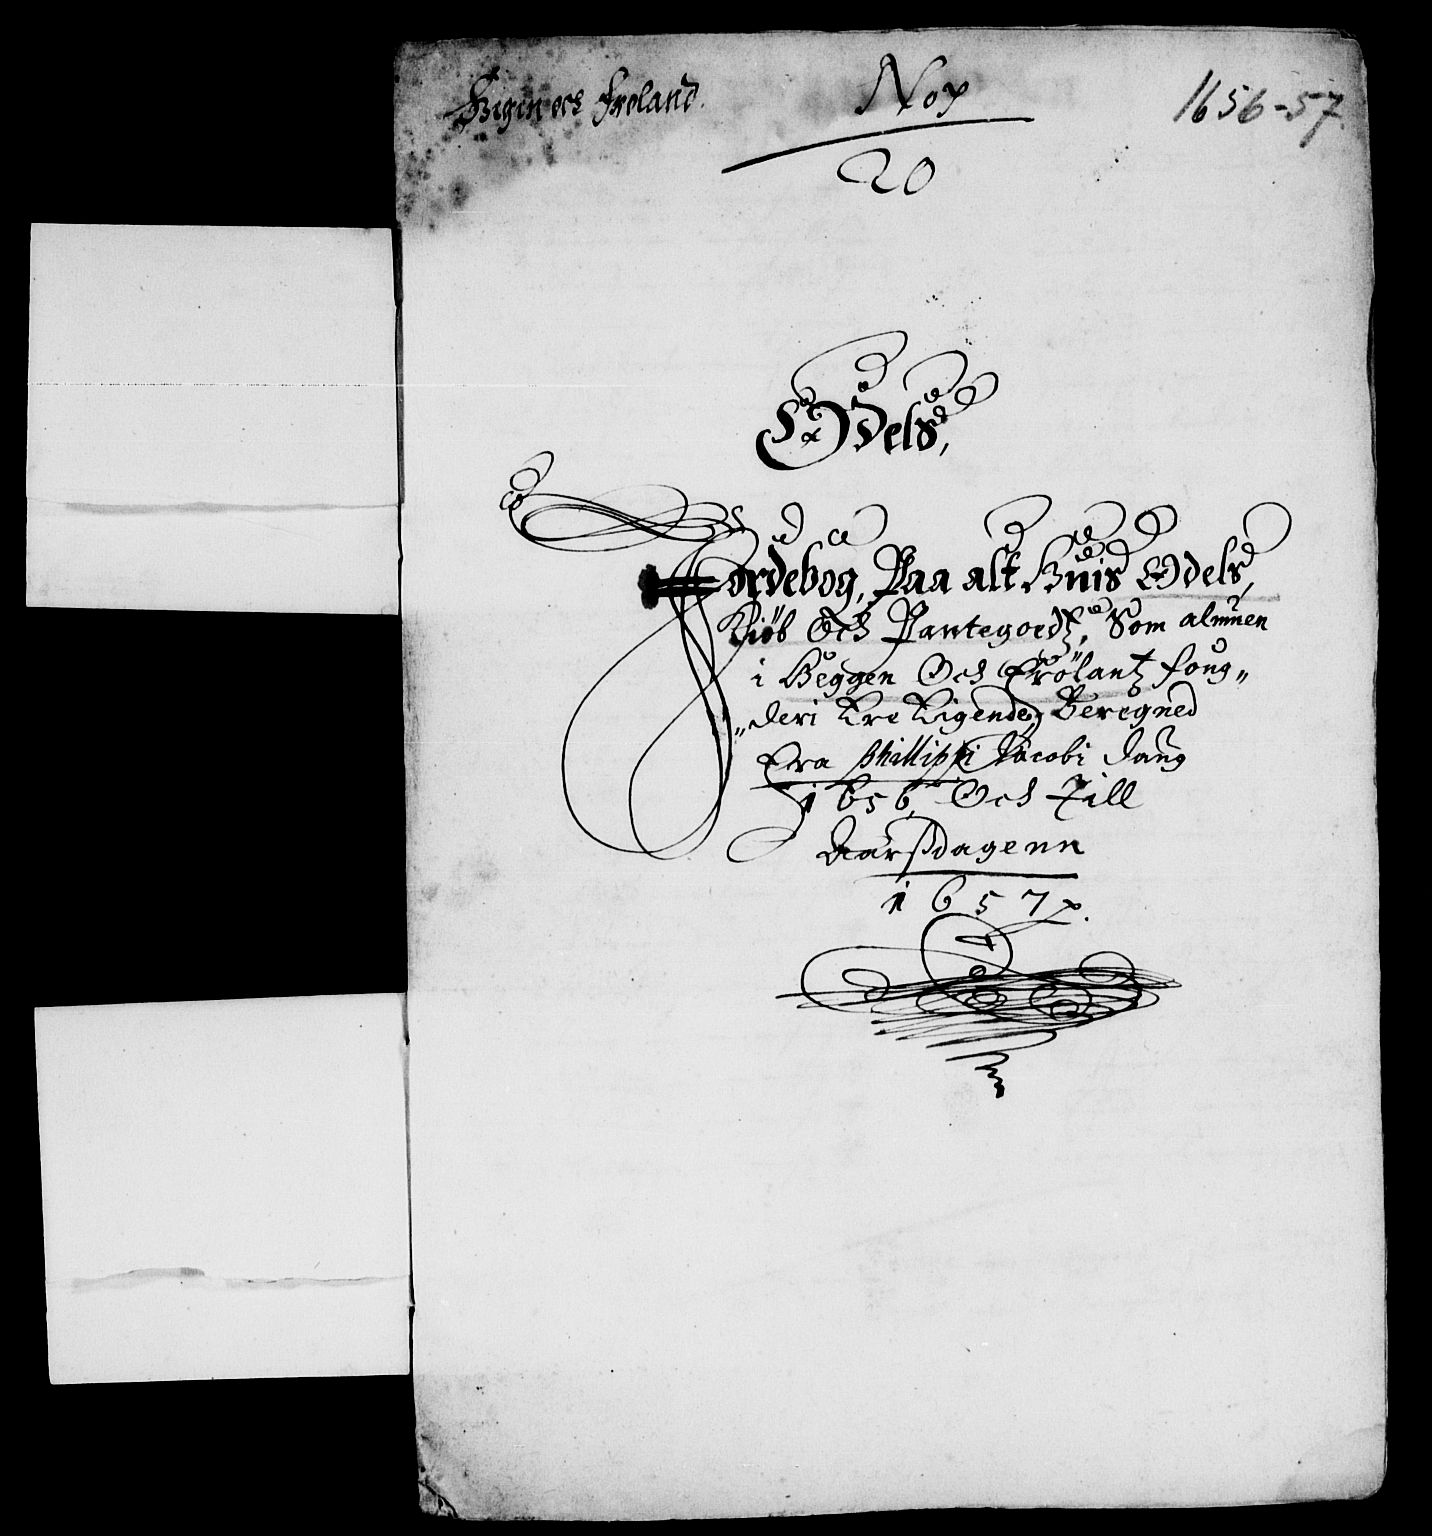 Bigin och Frøland.
No
20
1656-57
Odels,
Jordebog, Paa alt Huis Odels,
Kiøb Och Pantegoedtz, Som almuen
i Heggen Och Frølantz foug„
„deri Ere Eigendes Beregned
Fra Phillippi Jacobi daug
1656, Och Till
Aarsdagenn
1657